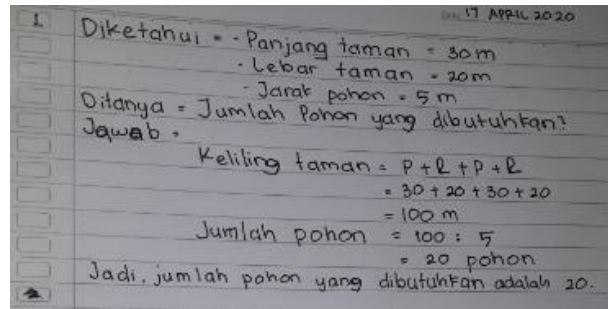 17 APRIL 2020
1 Diketahui = - Panjang taman = 30m
- Lebar taman = 20m
- Jarak pohon = 5 m
Ditanya = Jumlah Pohon yang dibutuhkan?
Jawab =
Keliling taman = P + l + P + l
= 30 + 20 + 30 + 20
= 100 m
Jumlah pohon = 100 : 5
= 20 pohon
Jadi, jumlah pohon yang dibutuhkan adalah 20.
2